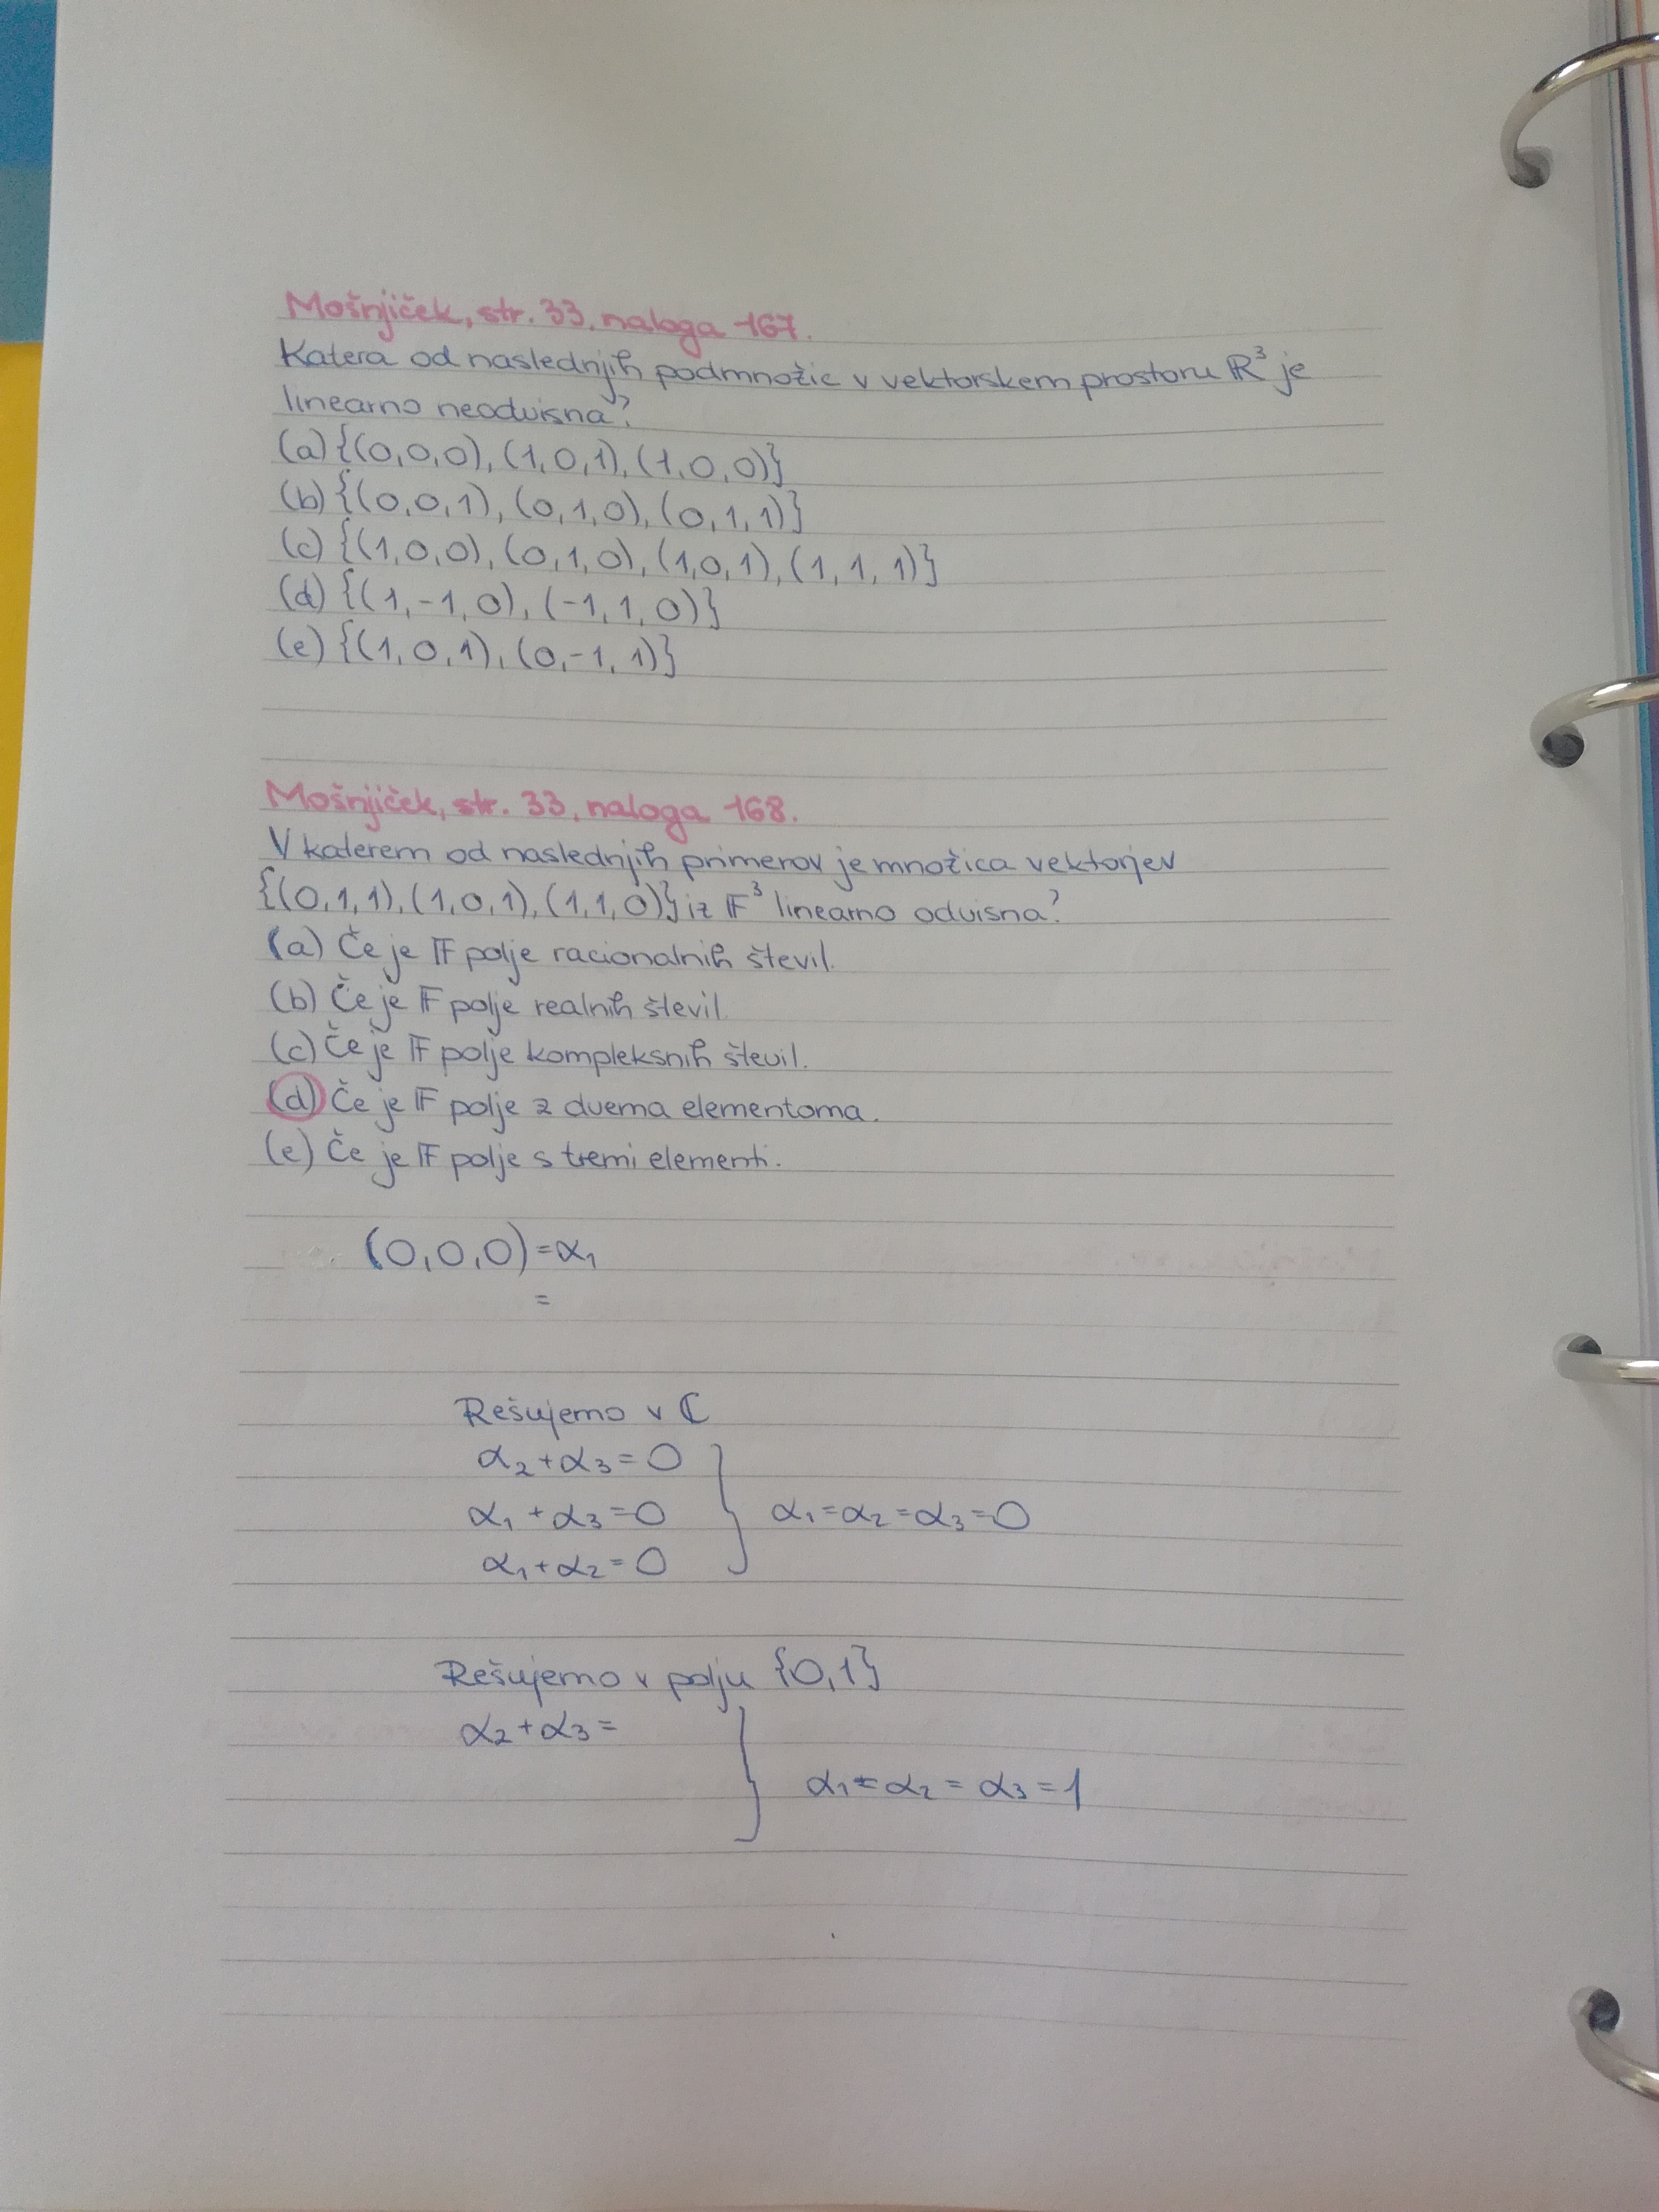 Mošnjiček, str. 33, naloga 167.
Katera od naslednjih podmnožic v vektorskem prostoru ℝ³ je
linearno neodvisna?
(a) {(0,0,0), (1,0,1), (1,0,0)}
(b) {(0,0,1), (0,1,0), (0,1,1)}
(c) {(1,0,0), (0,1,0), (1,0,1), (1,1,1)}
(d) {(1,-1,0), (-1,1,0)}
(e) {(1,0,1), (0,-1,1)}
Mošnjiček, str. 33, naloga 168.
V katerem od naslednjih primerov je množica vektorjev
{(0,1,1), (1,0,1), (1,1,0)} iz 𝔽³ linearno odvisna?
(a) Če je 𝔽 polje racionalnih števil.
(b) Če je 𝔽 polje realnih števil.
(c) Če je 𝔽 polje kompleksnih števil.
(d) Če je 𝔽 polje z dvema elementoma.
(e) Če je 𝔽 polje s tremi elementi.
(0,0,0) = α₁
=
Rešujemo v ℂ
α₂ + α₃ = 0
α₁ + α₃ = 0 } α₁ = α₂ = α₃ = 0
α₁ + α₂ = 0
Rešujemo v polju {0,1}
α₂ + α₃ =
} α₁ = α₂ = α₃ = 1